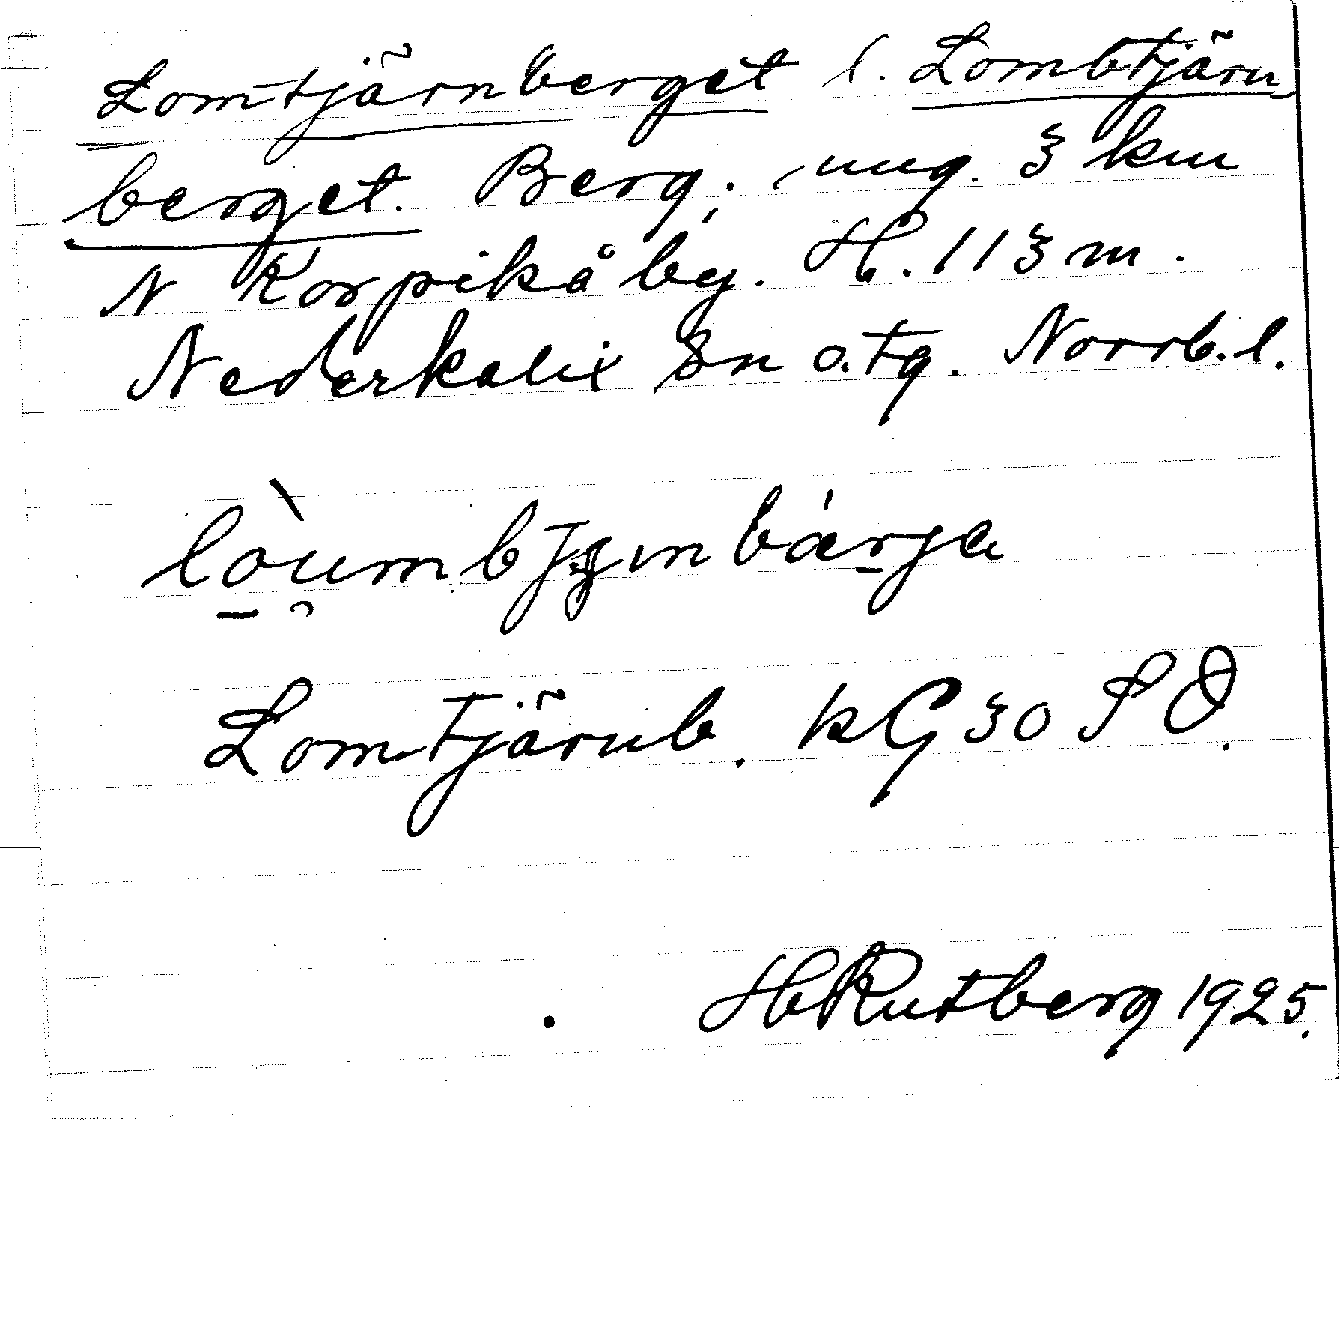 Lomtjärnberget l. Lombtjärn-
berget. Berg, ung. 3 km
N Korpikå by. H. 113 m.
Nederkalix sn o. tg. Norrb. l.
Lomtjärnb. kG 30 SO.
H Rutberg 1925.